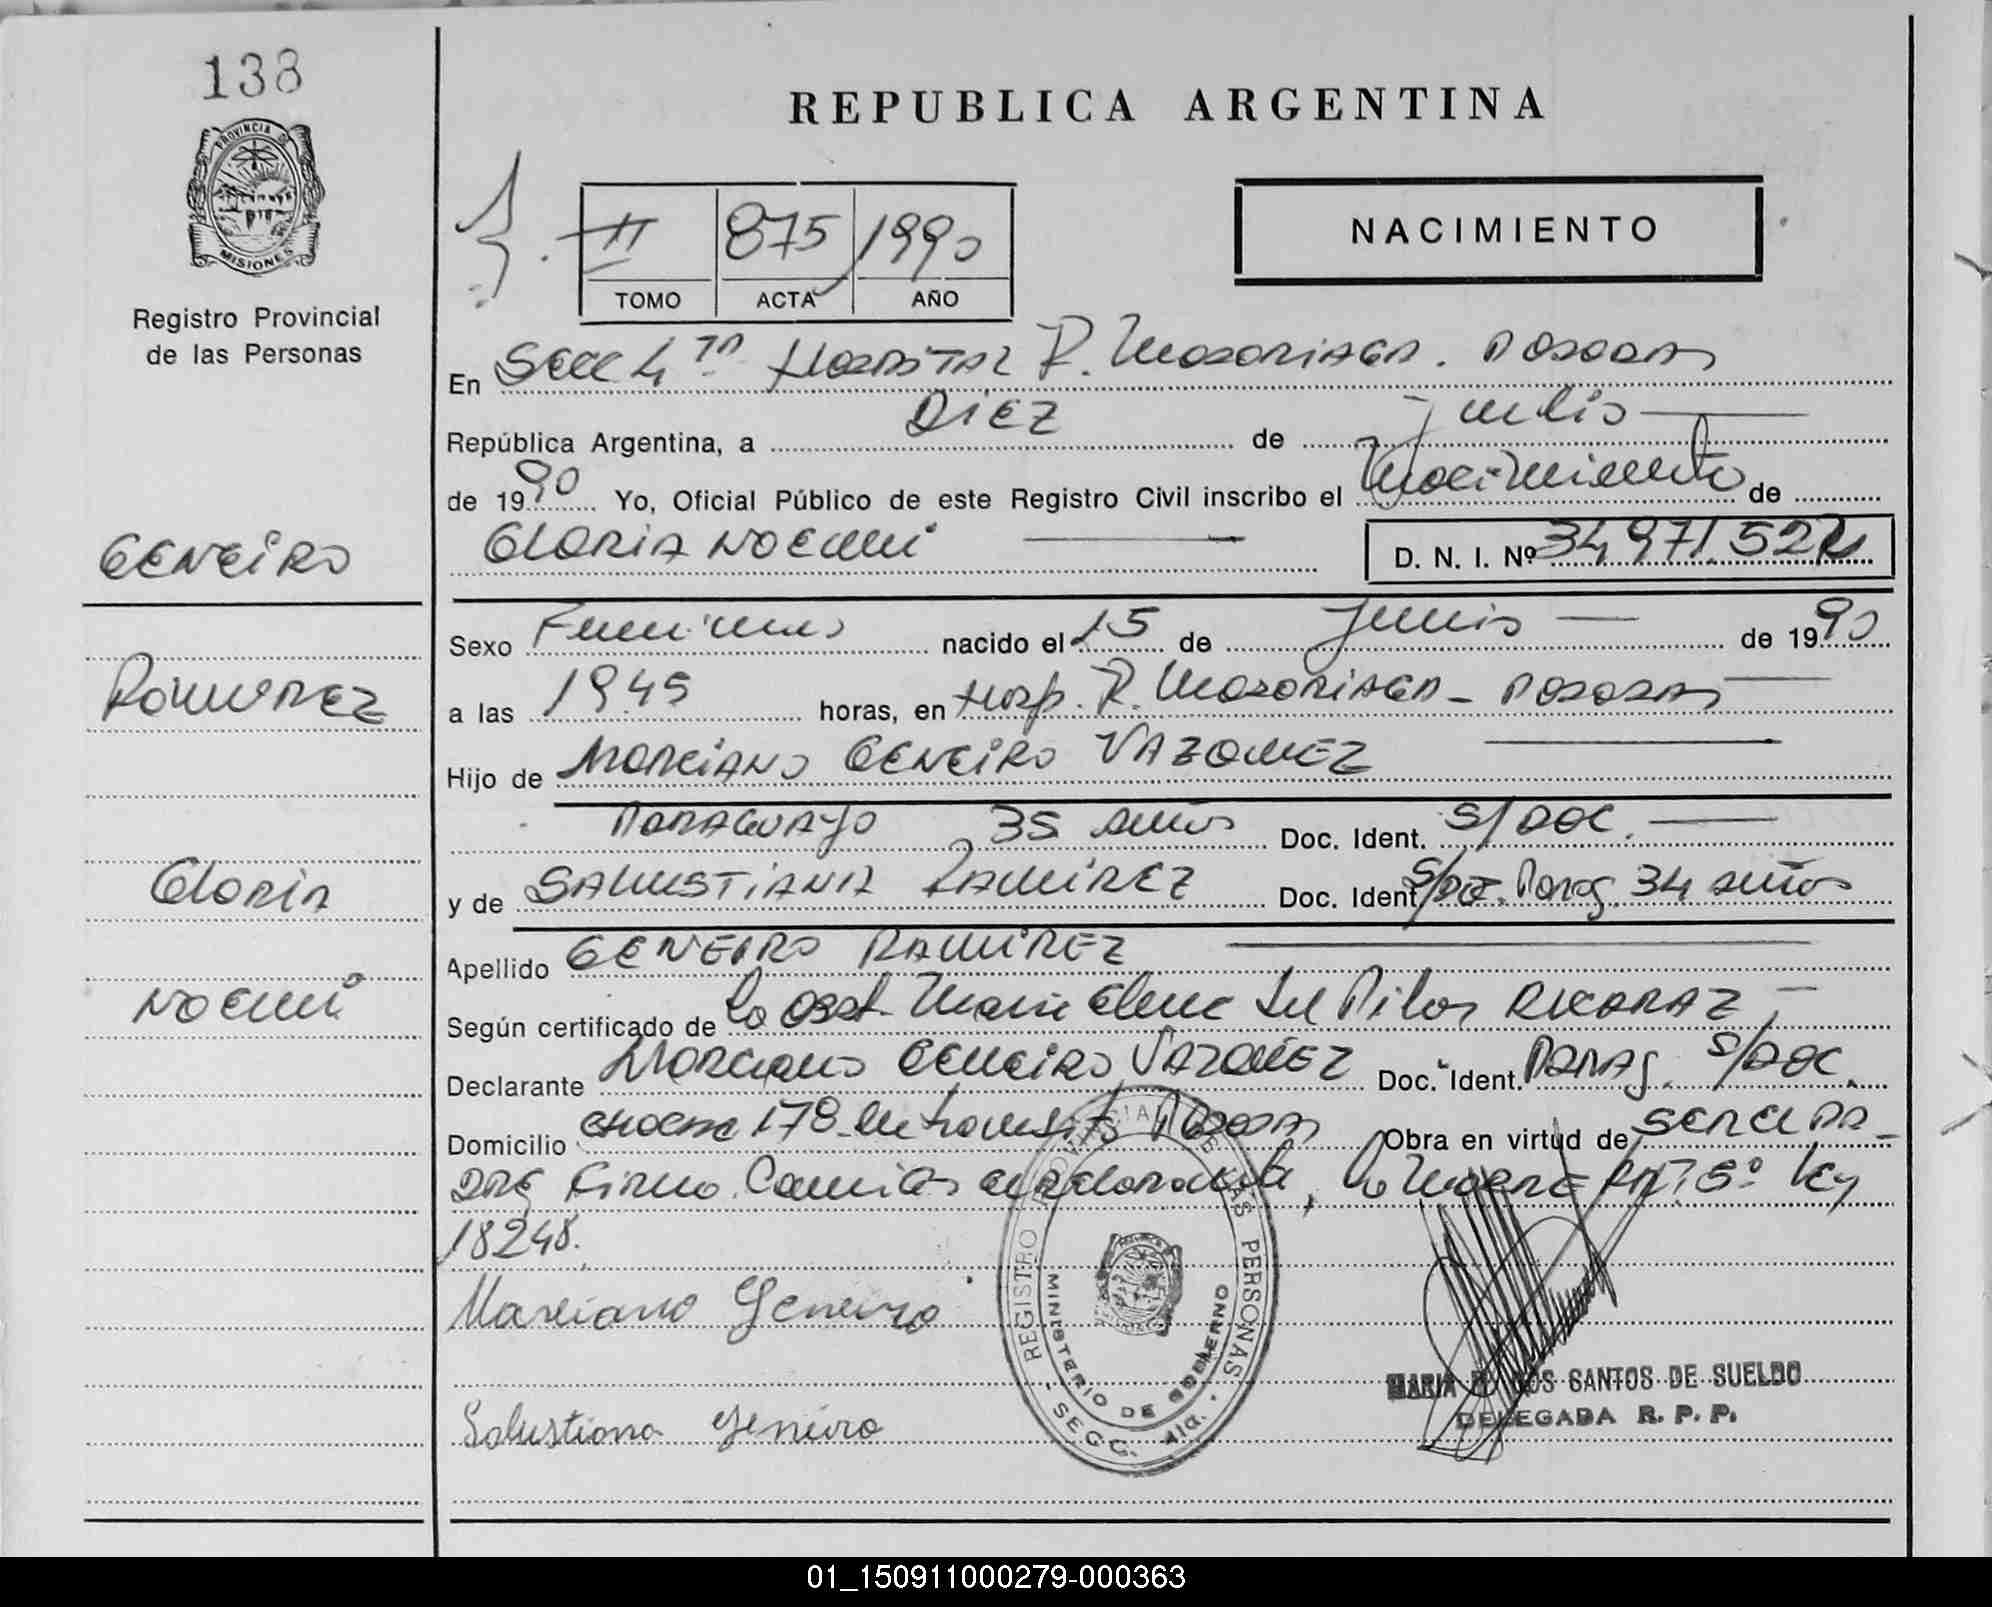 138
REPUBLICA ARGENTINA
PROVINCIA DE
MISIONES
Registro Provincial
de las Personas
II 875 1990
TOMO ACTA AÑO
NACIMIENTO
En Secc 4ta Hospital R. Madariaga. Posadas
República Argentina, a DIEZ de Julio
de 1990 Yo, Oficial Público de este Registro Civil inscribo el Nacimiento de
GLORIA NOEMI D. N. I. Nº 34.971.52
GENEIRO
Sexo Femenino nacido el 15 de Junio de 1990
a las 19.45 horas, en Hosp. R. Madariaga - Posadas
RAMIREZ
Hijo de MARCIANO GENEIRO VAZQUEZ
PARAGUAYO 35 años Doc. Ident. S/DOC.
y de SALUSTIANA RAMIREZ Doc. Ident. Parag. 34 años
GLORIA
Apellido GENEIRO RAMIREZ
NOEMI
Según certificado de la Obst. Maria Elena del Pilar ALCARAZ
Declarante Marciano GENEIRO VAZQUEZ Doc. Ident. PARAG. S/DOC.
Domicilio 178 en transito Posadas Obra en virtud de
Firma la Madre Art. 5º Ley
18248.
Marciano Geneiro
Salustiana Geneiro
REGISTRO PROVINCIAL DE LAS PERSONAS
MINISTERIO DE GOBIERNO
SECC. 4ta.
MARIA DOS SANTOS DE SUELDO
DELEGADA R. P. P.
01_150911000279-000363